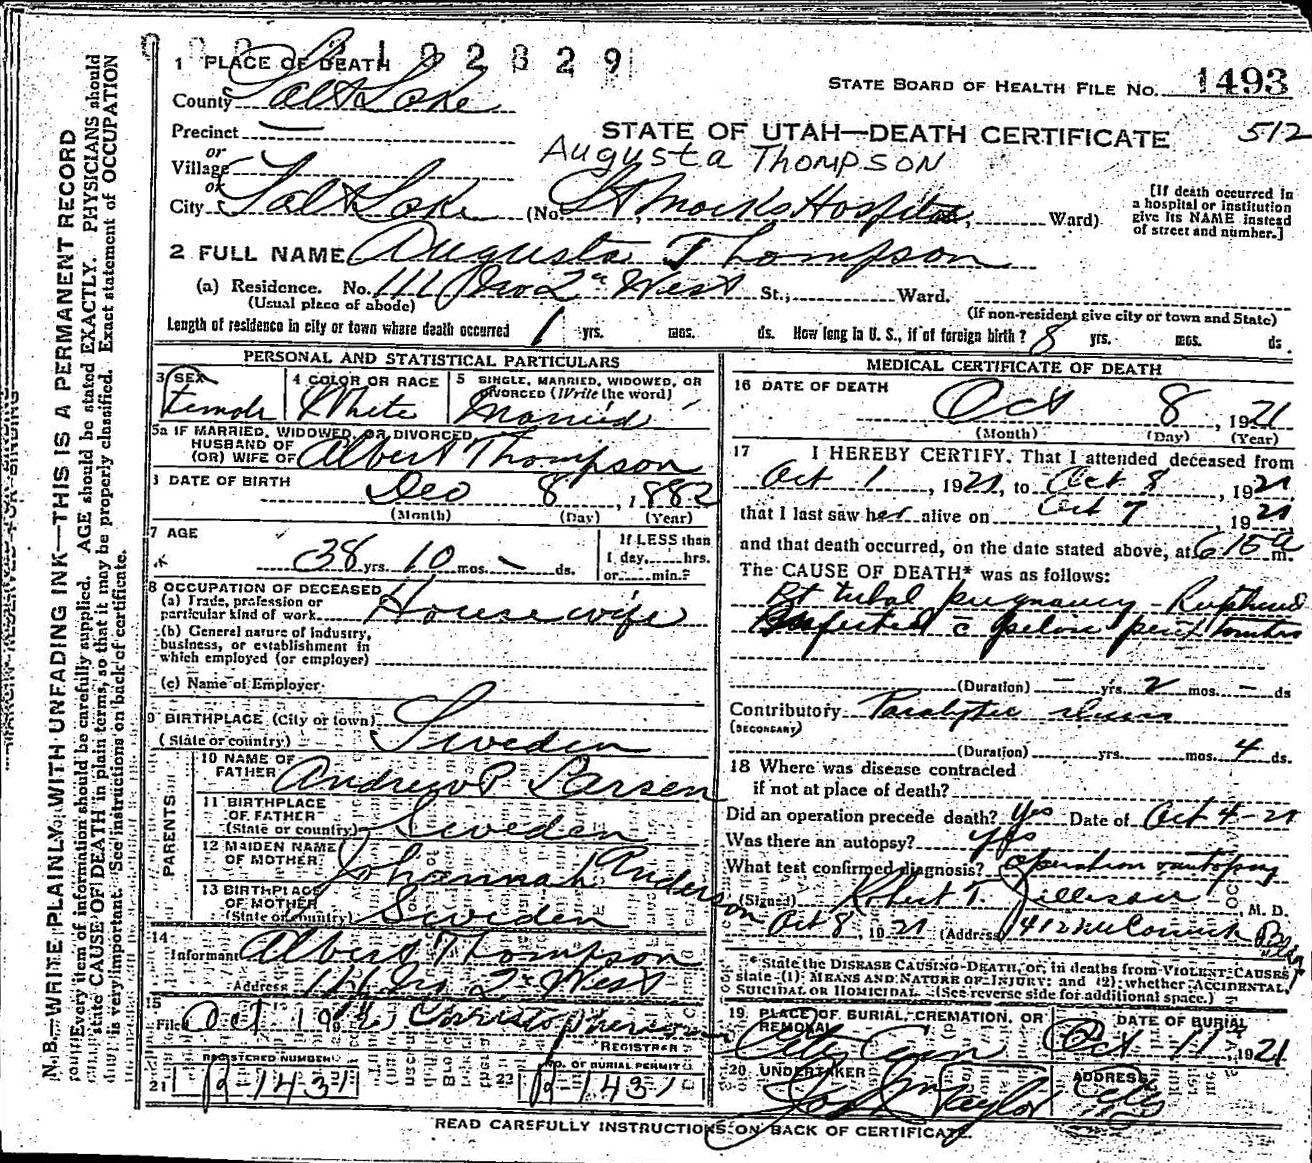 2102829
1 PLACE OF DEATH
STATE BOARD OF HEALTH FILE No. 1493
County Salt Lake
Precinct
STATE OF UTAH—DEATH CERTIFICATE 512
or
Augusta Thompson
Village
or
City Salt Lake (No. St Mark's Hospital, Ward)
[If death occurred in
a hospital or institution
give its NAME instead
of street and number.]
2 FULL NAME Augusta Thompson
(a) Residence. No. 111 No 2nd West St., Ward.
(Usual place of abode)
(If non-resident give city or town and State)
Length of residence in city or town where death occurred 1 yrs. mos. ds. How long in U. S., if of foreign birth? 8 yrs. mos. ds.
PERSONAL AND STATISTICAL PARTICULARS
3 SEX
Female
4 COLOR OR RACE
White
5 SINGLE, MARRIED, WIDOWED, OR
DIVORCED (Write the word)
Married
5a IF MARRIED, WIDOWED, OR DIVORCED
HUSBAND OF
(OR) WIFE OF Albert Thompson
DATE OF BIRTH
Dec 8, 1882
(Month) (Day) (Year)
7 AGE
38 yrs. 10 mos. — ds.
If LESS than
1 day, hrs.
or min.?
8 OCCUPATION OF DECEASED
(a) Trade, profession or
particular kind of work Housewife
(b) General nature of industry,
business, or establishment in
which employed (or employer)
(c) Name of Employer
9 BIRTHPLACE (City or town)
(State or country) Sweden
PARENTS
10 NAME OF
FATHER Andrew P. Larsen
11 BIRTHPLACE
OF FATHER
(State or country) Sweden
12 MAIDEN NAME
OF MOTHER Johannah Anderson
13 BIRTHPLACE
OF MOTHER
(State or country) Sweden
14
Informant Albert Thompson
Address 111 No 2nd West
15
Filed Oct 10 1921
REGISTRAR
REGISTERED NUMBER
21 B 1431
NO. OF BURIAL PERMIT
22 B 1431
MEDICAL CERTIFICATE OF DEATH
16 DATE OF DEATH
Oct 8, 1921
(Month) (Day) (Year)
17 I HEREBY CERTIFY, That I attended deceased from
Oct 1, 1921, to Oct 8, 1921
that I last saw her alive on Oct 7, 1921
and that death occurred, on the date stated above, at 615a m.
The CAUSE OF DEATH* was as follows:
Rt tubal pregnancy - Ruptured
Infected c̄ pelvic peritonitis
(Duration) — yrs. 2 mos. — ds
Contributory Paralytic ileus
(SECONDARY)
(Duration) yrs. mos. 4 ds.
18 Where was disease contracted
if not at place of death?
Did an operation precede death? yes Date of Oct 4-21
Was there an autopsy? yes
What test confirmed diagnosis? operation & autopsy
(Signed) Robert T. Jellison, M. D.
Oct 8, 1921 (Address) 1412 McCornick Bldg
* State the DISEASE CAUSING DEATH, or, in deaths from VIOLENT CAUSES
state (1) MEANS AND NATURE OF INJURY; and (2) whether ACCIDENTAL,
SUICIDAL OR HOMICIDAL (See reverse side for additional space.)
19 PLACE OF BURIAL, CREMATION, OR
REMOVAL
City Cem
DATE OF BURIAL
Oct 11, 1921
20 UNDERTAKER
Jos Wm Taylor
ADDRESS
City
READ CAREFULLY INSTRUCTIONS ON BACK OF CERTIFICATE.
N. B.—WRITE PLAINLY WITH UNFADING INK—THIS IS A PERMANENT RECORD
Every item of information should be carefully supplied. AGE should be stated EXACTLY. PHYSICIANS should
state CAUSE OF DEATH in plain terms, so that it may be properly classified. Exact statement of OCCUPATION
is very important. See instructions on back of certificate.
MARGIN RESERVED FOR BINDING